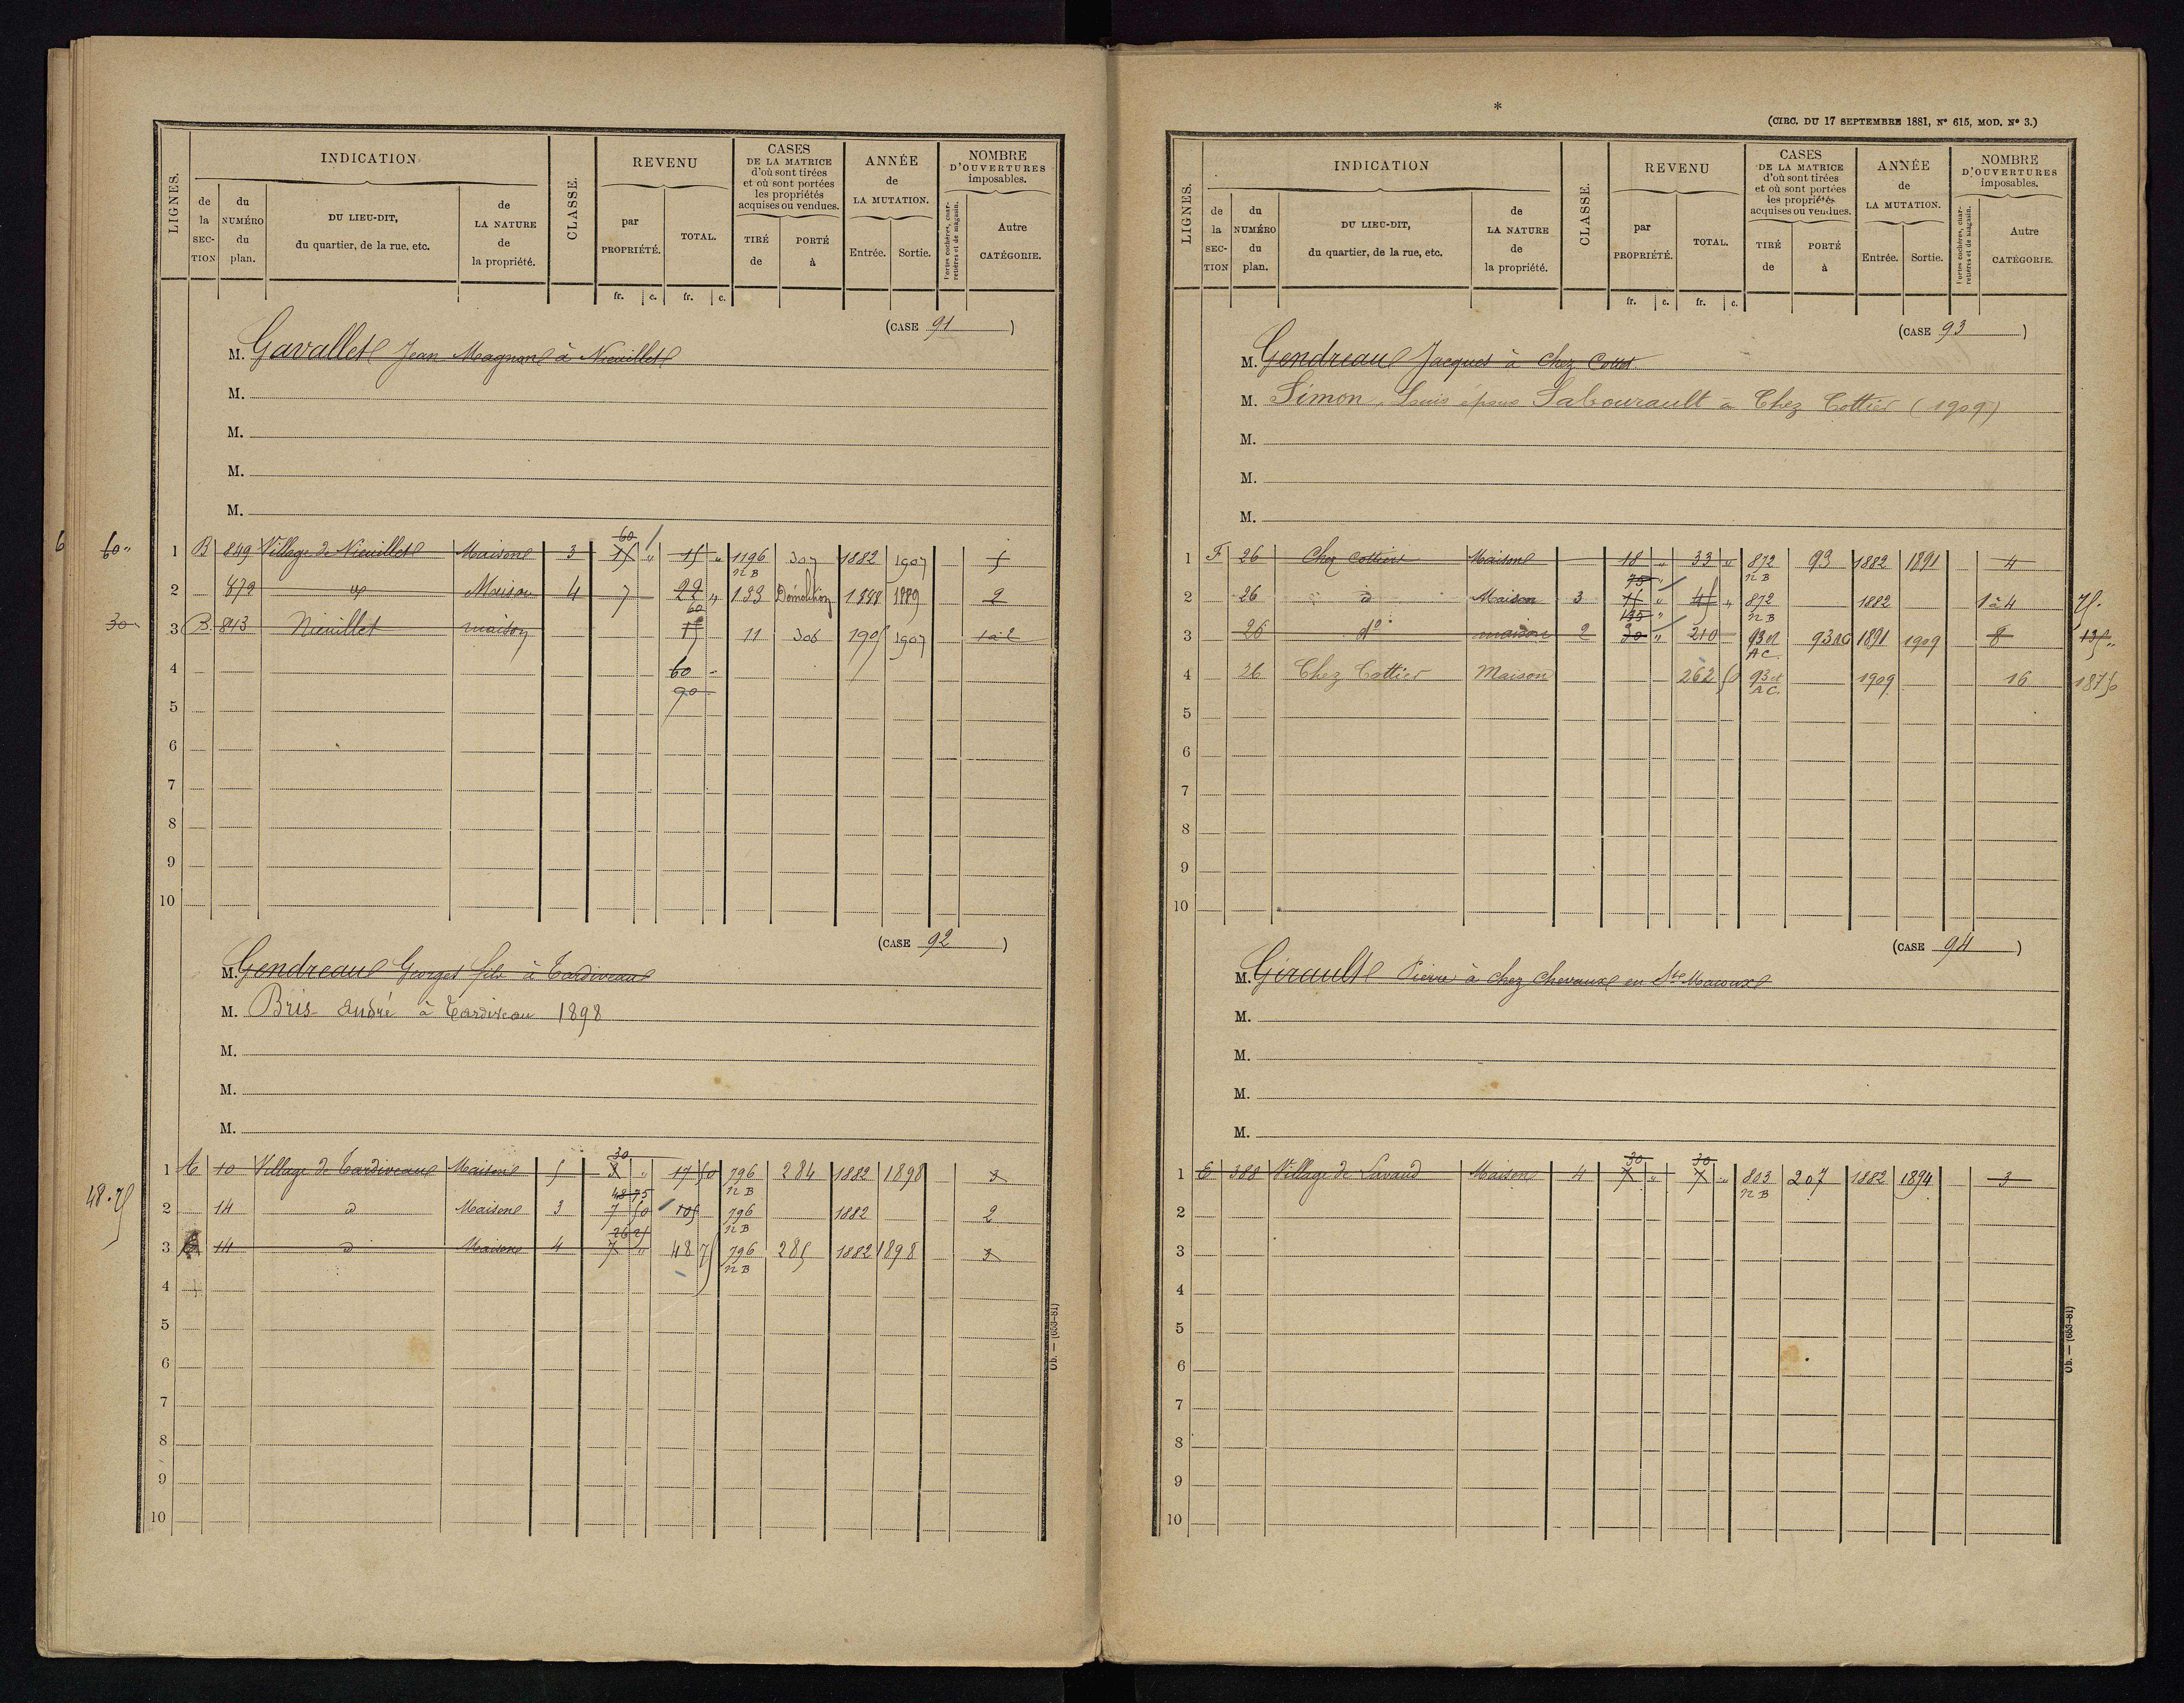 LIGNES.
INDICATION
de la SECTION
du NUMÉRO du plan.
DU LIEU-DIT, du quartier, de la rue, etc.
de LA NATURE de la propriété.
CLASSE.
REVENU
par PROPRIÉTÉ.
TOTAL.
CASES DE LA MATRICE d'où sont tirées et où sont portées les propriétés acquises ou vendues.
TIRÉ de
PORTÉ à
ANNÉE de LA MUTATION.
Entrée. Sortie.
NOMBRE D'OUVERTURES imposables.
Portes cochères, charretières et de magasin.
Autre CATÉGORIE.
fr. c. fr. c.
(CASE 91)
M. Gavallet Jean Magnan à Nieuillet
M.
M.
M.
M.
60
6 60 „ 1 B 849 Village de Nieuillet Maison 3 15 „ 15 „ 1196 307 1882 1907 5
n B
2 879 Maison 4 7 22 „ 133 Démolition 1888 1889 2
60
30 3 B 843 Nieuillet maison 15 11 306 1905 1907 1 à 2
4 60
90
5
6
7
8
9
10
(CASE 92)
M. Gendreau Georges fils à Tardiveau
M. Bris André à Tardiveau 1898
M.
M.
M.
30
1 10 Village de Tardiveau Maison 5 8 „ 17 50 796 284 1882 1898 3
n B
48.75
48 75
2 14 d Maison 3 7 50 105 796 1882 2
n B
26 25
3 14 d Maison 4 7 „ 48 75 796 285 1882 1898 3
n B
4
5
6
7
8
9
10
Ob. — (653-81)
*
(CIRC. DU 17 SEPTEMBRE 1881, Nº 615, MOD. Nº 3.)
LIGNES.
INDICATION
de la SECTION
du NUMÉRO du plan.
DU LIEU-DIT, du quartier, de la rue, etc.
de LA NATURE de la propriété.
CLASSE.
REVENU
par PROPRIÉTÉ.
TOTAL.
CASES DE LA MATRICE d'où sont tirées et où sont portées les propriétés acquises ou vendues.
TIRÉ de
PORTÉ à
ANNÉE de LA MUTATION.
Entrée. Sortie.
NOMBRE D'OUVERTURES imposables.
Portes cochères, charretières et de magasin.
Autre CATÉGORIE.
fr. c. fr. c.
(CASE 93)
M. Gendreau Jacques à Chez
M. Simon Louis époux Sabourault à Chez Cottier (1909)
M.
M.
M.
1 F 26 Chez Maison 18 „ 33 „ 872 93 1882 1891 4
n B
75 „
2 26 d Maison 3 15 „ „ 872 1882 1 à 4 75.
n B
135 „
3 26 dº maison 2 „ 210 93 et 93 AC 1891 1909 8 135 „
AC.
4 26 Chez Cottier Maison 262 50 93 et 1909 16 187 50
AC.
5
6
7
8
9
10
(CASE 94)
M. Girault Pierre à chez Chevaux en St Macoux
M.
M.
M.
M.
30 30
1 E 388 Village de Lavaud Maison 4 7 „ 7 „ 803 207 1882 1894 3
n B
2
3
4
5
6
7
8
9
10
Ob. — (653-81)